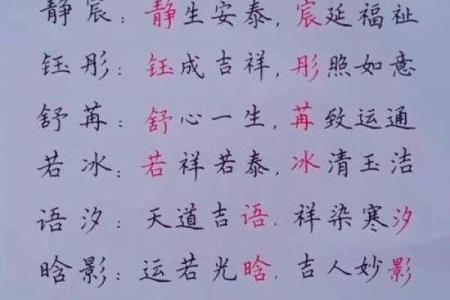 静宸：静生安泰，宸延福祉
钰彤：钰成吉祥，彤照如意
舒苒：舒心一生，苒致运通
若冰：若祥若泰，冰清玉洁
语汐：天道吉语，祥染寒汐
晗影：运若光晗，吉人妙影